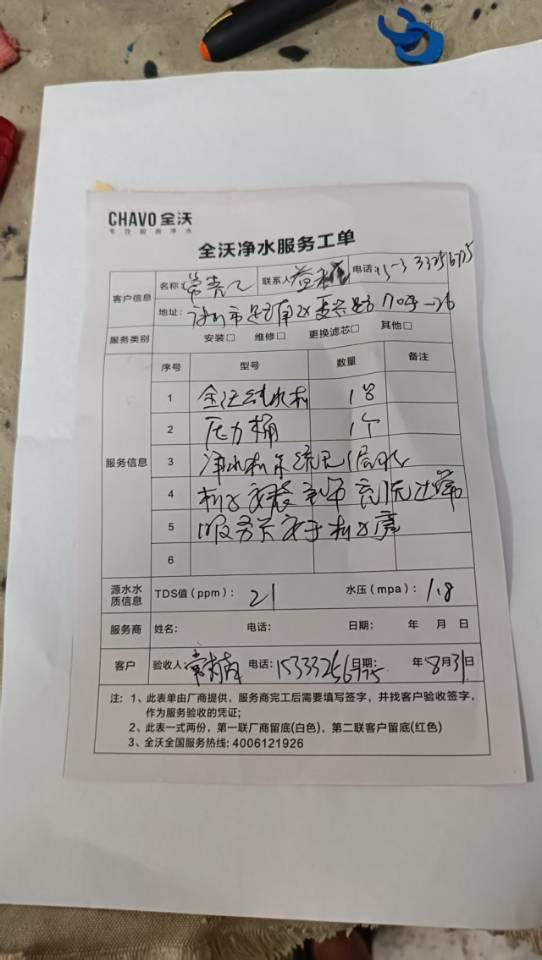 CHAVO 全沃
专注厨房净水
全沃净水服务工单
客户信息
名称: 联系人 电话:
地址: 市
服务类别 安装□ 维修□ 更换滤芯□ 其他□
服务信息
序号 型号 数量 备注
1 全沃纯水机 1台
2 压力桶 1个
3 净水机系统无漏水
4
5
6
源水水质信息 TDS值(ppm): 21 水压(mpa): 1.8
服务商 姓名: 电话: 日期: 年 月 日
客户 验收人: 电话: 15333256975 日期: 年 8月31日
注: 1、此表单由厂商提供，服务商完工后需要填写签字，并找客户验收签字，
作为服务验收的凭证;
2、此表一式两份，第一联厂商留底(白色)，第二联客户留底(红色)
3、全沃全国服务热线: 4006121926